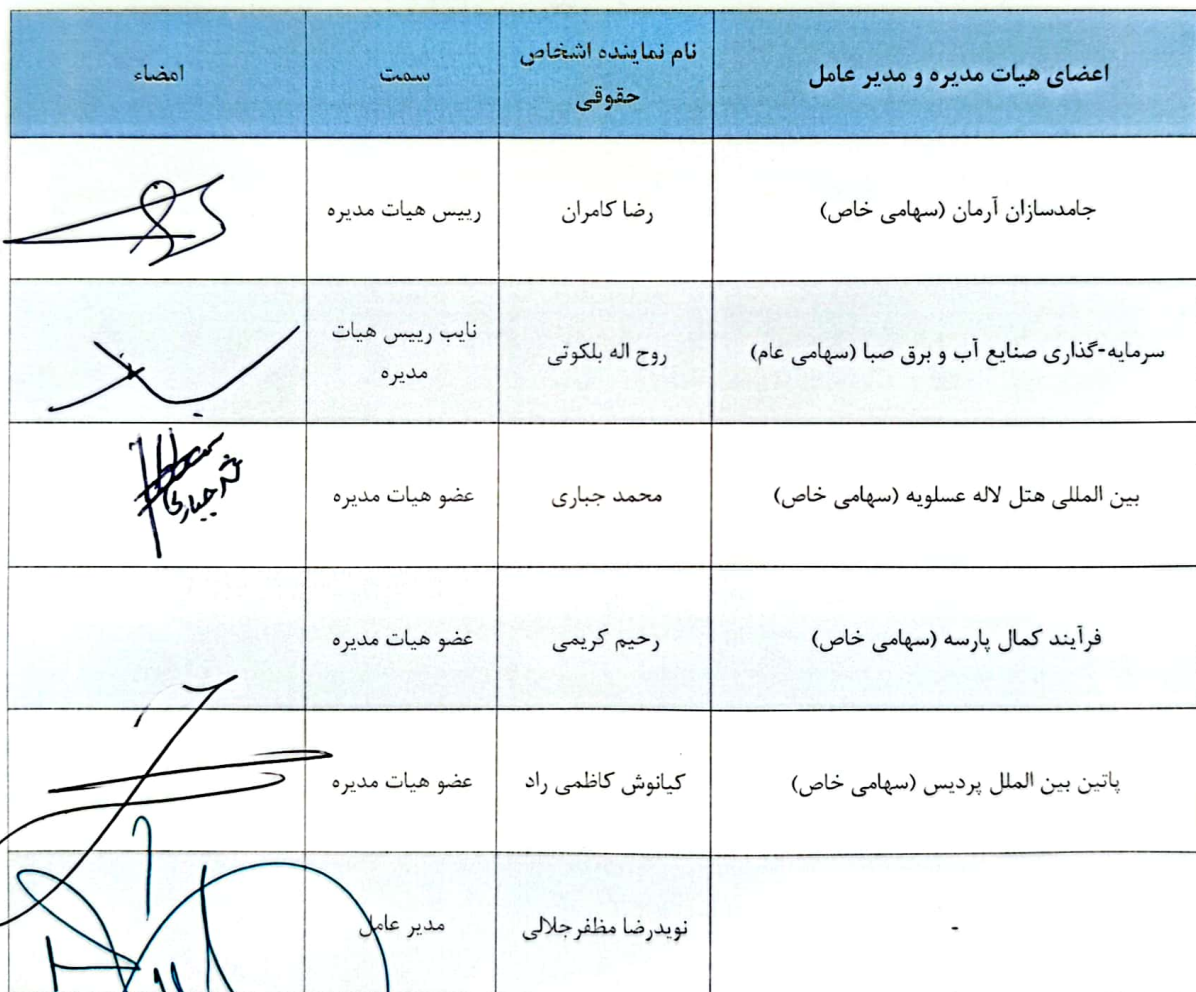 اعضای هیات مدیره و مدیر عامل
نام نماینده اشخاص
حقوقی
سمت
امضاء
جامدسازان آرمان (سهامی خاص)
رضا کامران
رییس هیات مدیره
سرمایه-گذاری صنایع آب و برق صبا (سهامی عام)
روح اله بلکوتی
نایب رییس هیات
مدیره
بین المللی هتل لاله عسلویه (سهامی خاص)
محمد جباری
عضو هیات مدیره
فرآیند کمال پارسه (سهامی خاص)
رحیم کریمی
عضو هیات مدیره
پاتین بین الملل پردیس (سهامی خاص)
کیانوش کاظمی راد
عضو هیات مدیره
-
نویدرضا مظفرجلالی
مدیر عامل